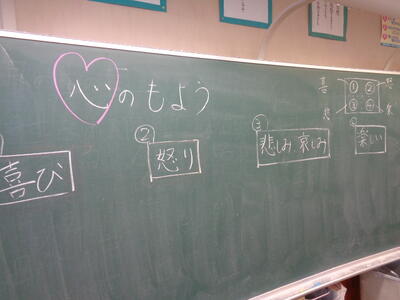 心のもよう
喜 ① ② 怒
③ ④ 楽
喜び
② 怒り
③ 悲しみ 哀しみ
楽しい